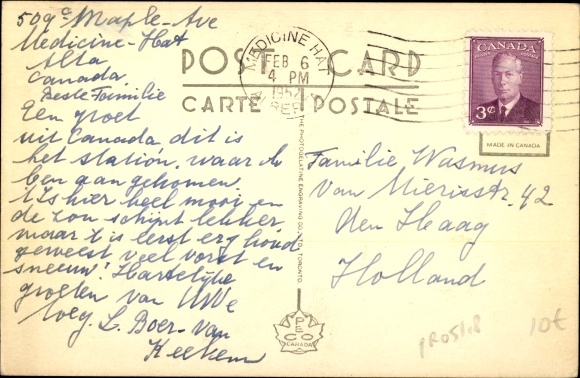 509c Maple-Ave
Medicine-Hat
Alta
Canada
Beste Familie
Een groet
uit Canada, dit is
het station, waar ik
ben aangekomen.
't Is hier heel mooi en
de zon schijnt lekker,
maar 't is eerst erg koud
geweest veel vorst en
sneeuw! Hartelijke
groeten van UWe
toeg. L. Boer-van
Keeken
POST CARD
CARTE POSTALE
MEDICINE HAT
FEB 6
4 PM
1952
CANADA
3¢
MADE IN CANADA
THE PHOTOGELATINE ENGRAVING CO. LTD. TORONTO
Familie Wasmus
van Mierisstr. 42
den Haag
Holland
PECO
CANADA
10€